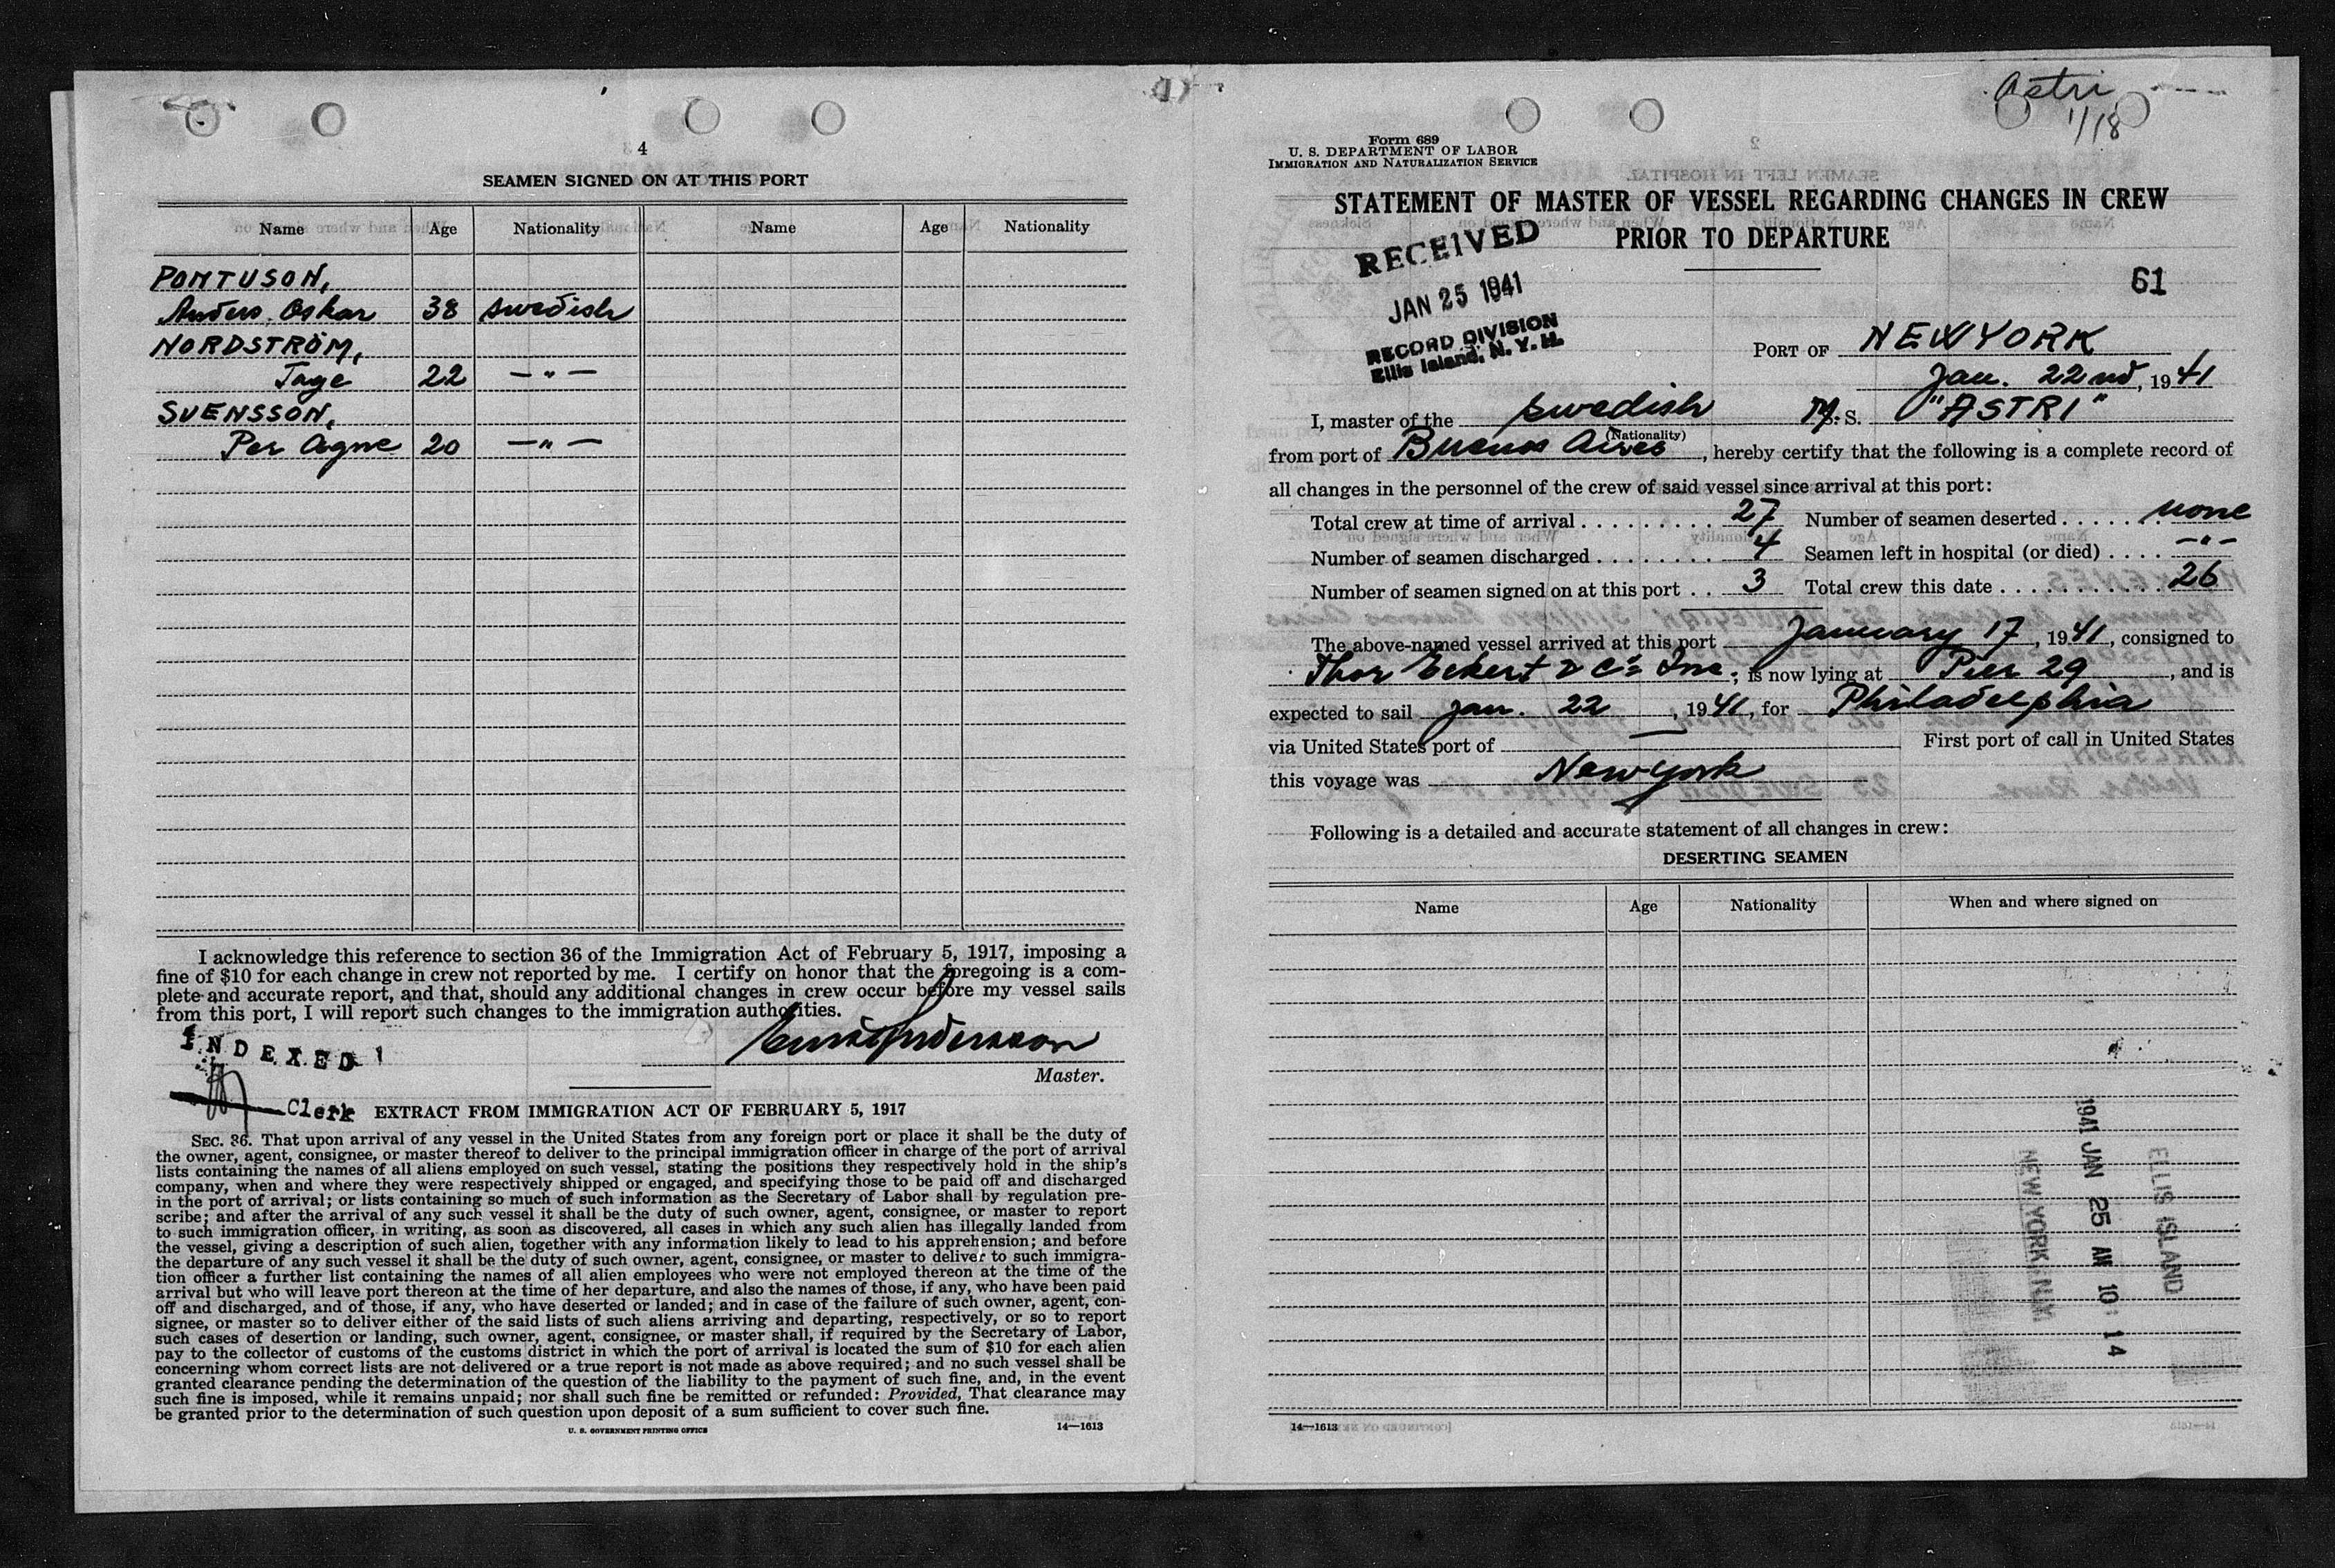 4
SEAMEN SIGNED ON AT THIS PORT
Name Age Nationality Name Age Nationality
PONTUSON,
Anders Oskar 38 swedish
NORDSTRÖM,
Tage 22 — " —
SVENSSON,
Per Agne 20 — " —
I acknowledge this reference to section 36 of the Immigration Act of February 5, 1917, imposing a
fine of $10 for each change in crew not reported by me. I certify on honor that the foregoing is a com-
plete and accurate report, and that, should any additional changes in crew occur before my vessel sails
from this port, I will report such changes to the immigration authorities.
INDEXED
Master.
Clerk
EXTRACT FROM IMMIGRATION ACT OF FEBRUARY 5, 1917
SEC. 36. That upon arrival of any vessel in the United States from any foreign port or place it shall be the duty of
the owner, agent, consignee, or master thereof to deliver to the principal immigration officer in charge of the port of arrival
lists containing the names of all aliens employed on such vessel, stating the positions they respectively hold in the ship's
company, when and where they were respectively shipped or engaged, and specifying those to be paid off and discharged
in the port of arrival; or lists containing so much of such information as the Secretary of Labor shall by regulation pre-
scribe; and after the arrival of any such vessel it shall be the duty of such owner, agent, consignee, or master to report
to such immigration officer, in writing, as soon as discovered, all cases in which any such alien has illegally landed from
the vessel, giving a description of such alien, together with any information likely to lead to his apprehension; and before
the departure of any such vessel it shall be the duty of such owner, agent, consignee, or master to deliver to such immigra-
tion officer a further list containing the names of all alien employees who were not employed thereon at the time of the
arrival but who will leave port thereon at the time of her departure, and also the names of those, if any, who have been paid
off and discharged, and of those, if any, who have deserted or landed; and in case of the failure of such owner, agent, con-
signee, or master so to deliver either of the said lists of such aliens arriving and departing, respectively, or so to report
such cases of desertion or landing, such owner, agent, consignee, or master shall, if required by the Secretary of Labor,
pay to the collector of customs of the customs district in which the port of arrival is located the sum of $10 for each alien
concerning whom correct lists are not delivered or a true report is not made as above required; and no such vessel shall be
granted clearance pending the determination of the question of the liability to the payment of such fine, and, in the event
such fine is imposed, while it remains unpaid; nor shall such fine be remitted or refunded: Provided, That clearance may
be granted prior to the determination of such question upon deposit of a sum sufficient to cover such fine.
U. S. GOVERNMENT PRINTING OFFICE 14—1613
Astri
1/18
Form 689
U. S. DEPARTMENT OF LABOR
IMMIGRATION AND NATURALIZATION SERVICE
STATEMENT OF MASTER OF VESSEL REGARDING CHANGES IN CREW
PRIOR TO DEPARTURE
RECEIVED
JAN 25 1941
RECORD DIVISION
Ellis Island, N. Y. H.
61
PORT OF NEW YORK
Jan. 22nd, 1941
I, master of the swedish M. S. "ASTRI"
(Nationality)
from port of Buenos Aires, hereby certify that the following is a complete record of
all changes in the personnel of the crew of said vessel since arrival at this port:
Total crew at time of arrival . . . . . . . . . 27 Number of seamen deserted . . . . . none
Number of seamen discharged . . . . . . . . 4 Seamen left in hospital (or died) . . . . — " —
Number of seamen signed on at this port . . 3 Total crew this date . . . . . . . . . . . . 26
The above-named vessel arrived at this port January 17, 1941, consigned to
Thor Eckert & Co Inc.; is now lying at Pier 29, and is
expected to sail Jan. 22, 1941, for Philadelphia
via United States port of — First port of call in United States
this voyage was New York
Following is a detailed and accurate statement of all changes in crew:
DESERTING SEAMEN
Name Age Nationality When and where signed on
1941 JAN 25 AM 10 14
ELLIS ISLAND
NEW YORK N.Y.
14—1613